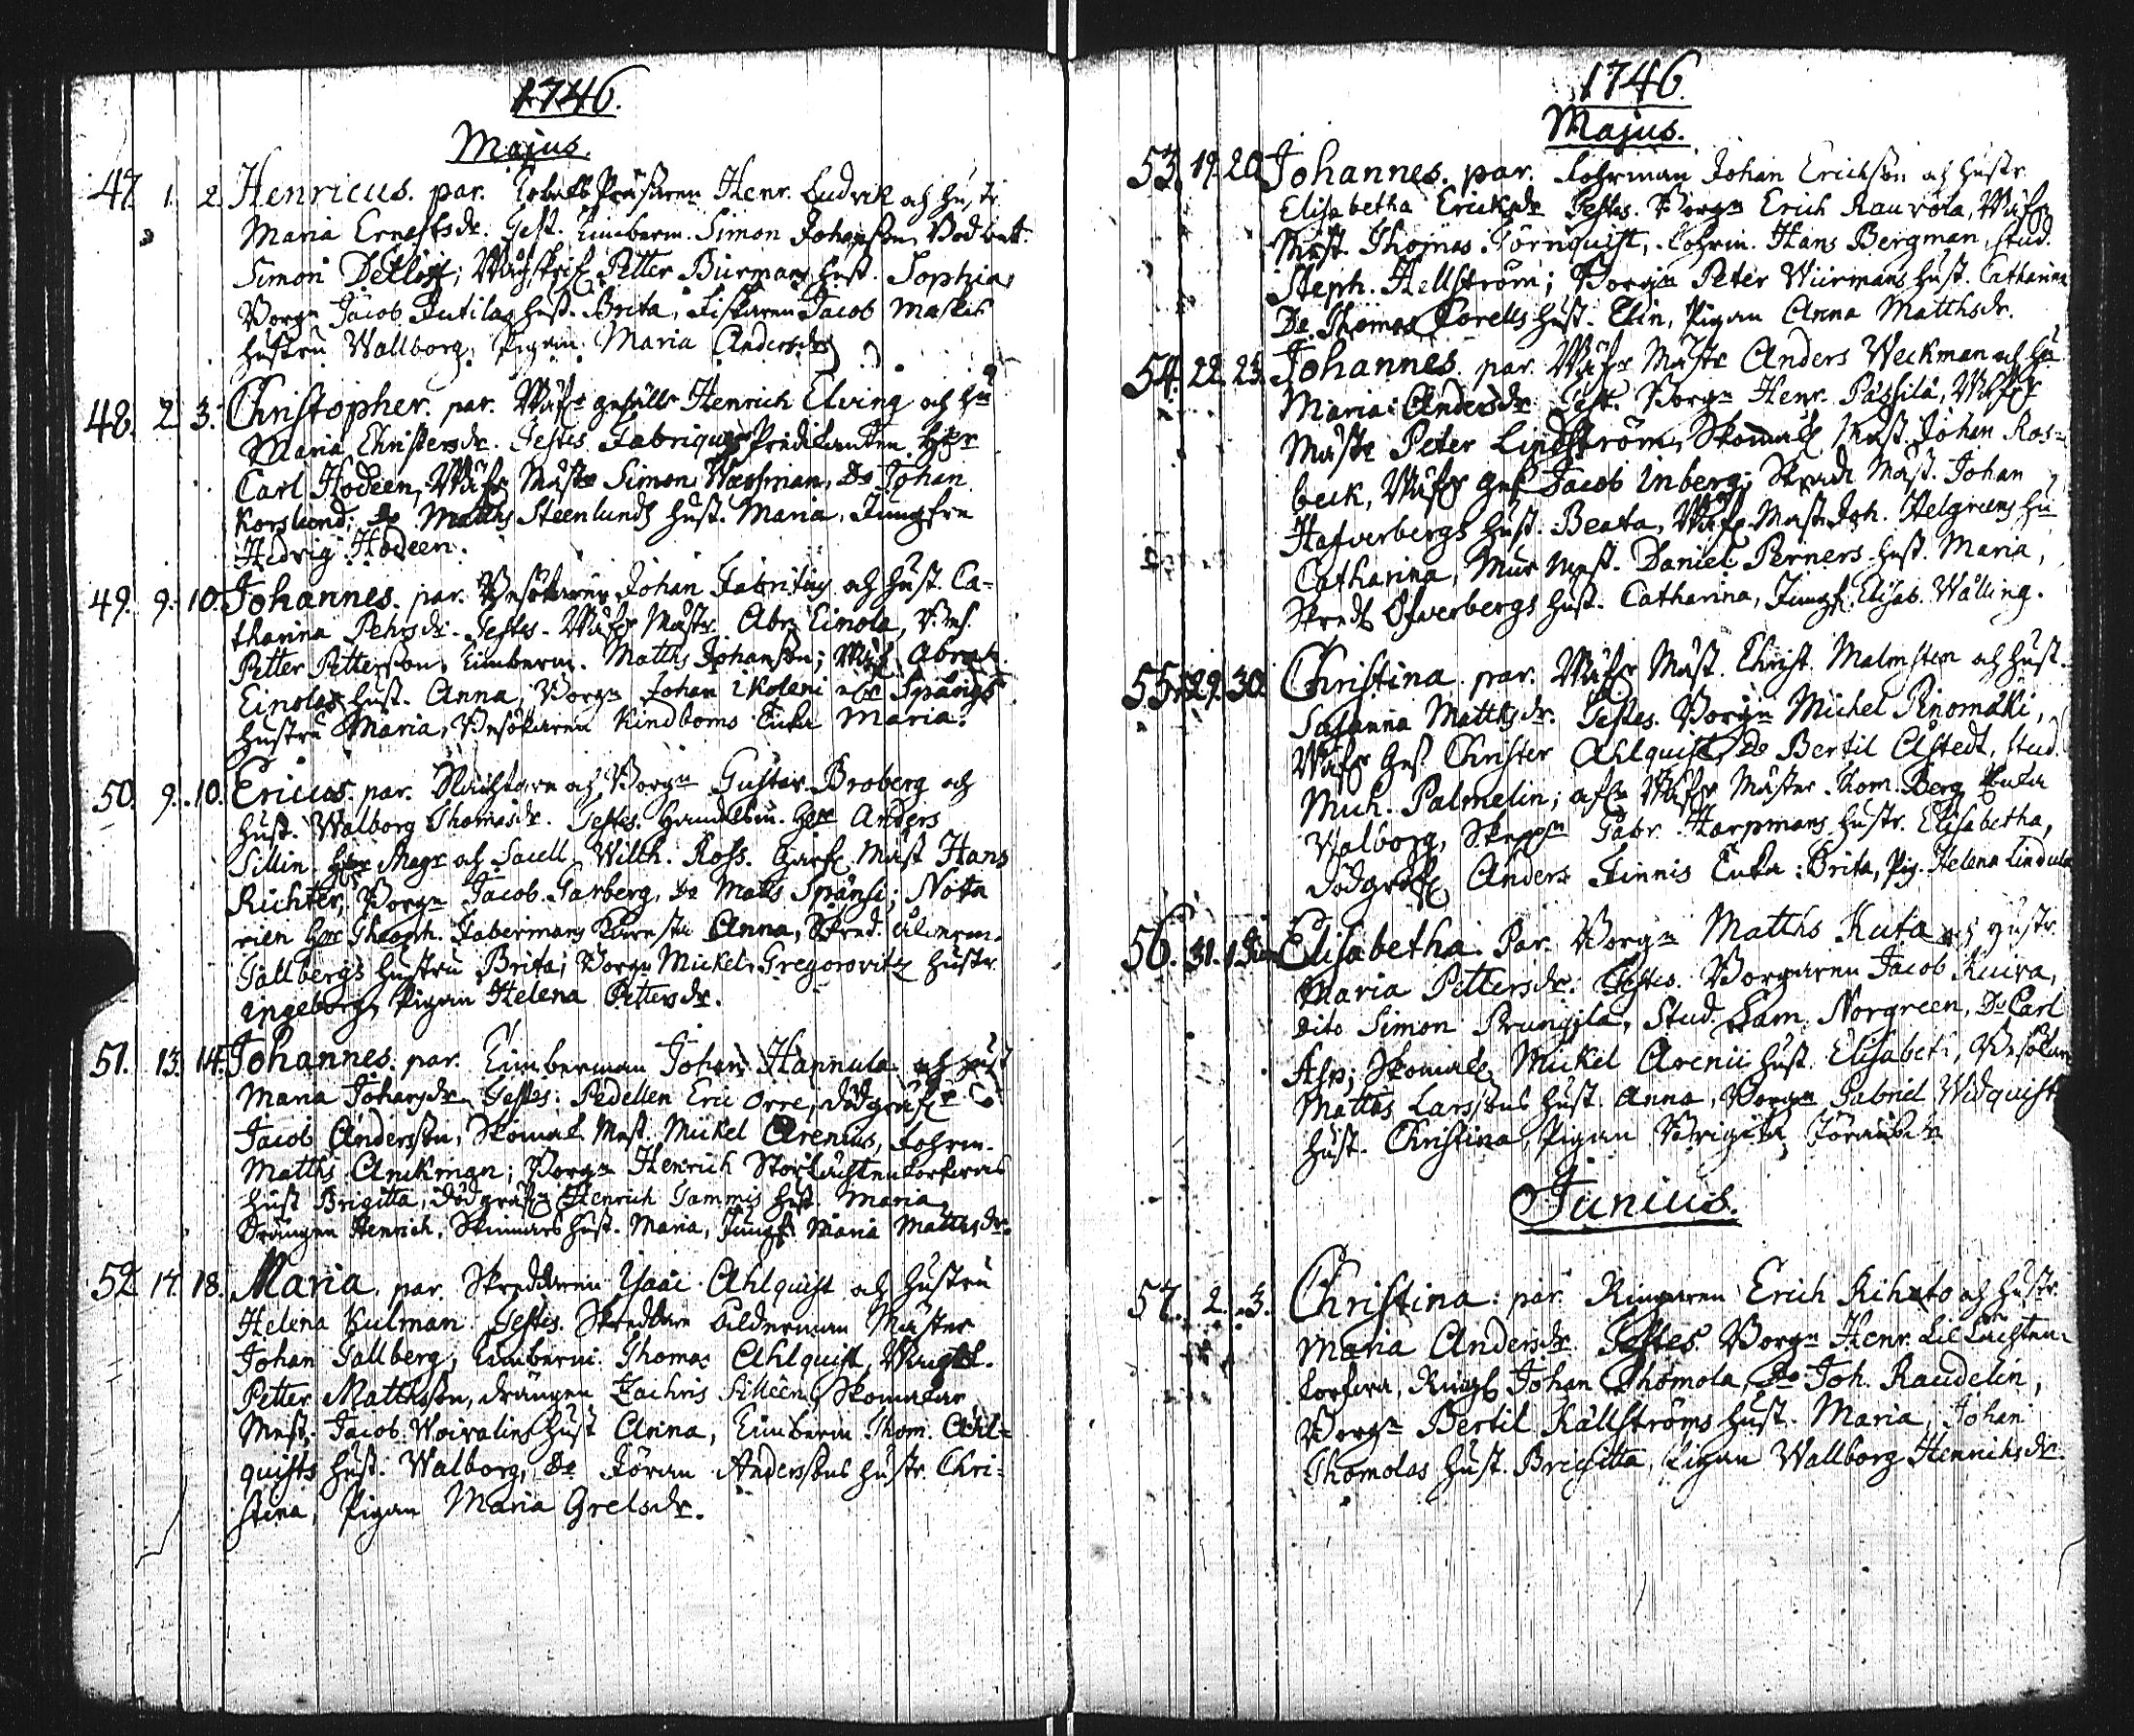 1746.
Majus.
47. 1. 2. Henricus. par. Henr. Ludvik och hustr.
Maria Ernestsdr. Test. Timberm. Simon Johansson,
Simon Detlöff; Petter Burmans hust. Sophia,
Borgn Jacob Jutilas hust. Brita, Fiskaren Jacob Maskus
hustru Wallborg, Pigan Maria Andersdr
48. 2. 3. Christopher. par. Wäfr gesälle Henrich Elving och hu
Maria Christersdr. Testes. Fabriques Predikanten Herr
Carl Hodeen, Wäfr Mäster Simon Wassman, Do Johan
Korslund; do Matths Steenlunds hust. Maria, Jungfru
Hedvig Hodeen.
49. 9. 10. Johannes. par. Besökaren Johan Fabritius och hust. Ca-
tharina Pehrsdr. Testes. Wäfr Mästr. Abr. Einola,
Petter Petterson, Timberm. Matths Johanson; Wäf. Abrah.
Einolas hust. Anna, Borgn Johan Ikoleni Spångs
hustru Maria, Besökaren Kindboms Enka Maria.
50. 9. 10. Ericus. par. Slachtare och Borgn Gustav Broberg och
hust. Walborg Thomasdr. Testes. Handelsm. Herr Anders
Sillin. Herr Magr och Sacell. Wilh. Ross. Garfv. Mäst Hans
Richter, Borgn Jacob Garberg, do Matts Spånsi; Nota
rien Herr Theoph. Fabermans Anna, Skred.Ålderm.
Tallbergs hustru Brita; Borgn Mickel Gregorovitz hustr
Ingeborg, Pigan Helena Pettersdr.
51. 13. 14. Johannes. par. Timberman Johan Hannula och hust
Maria Johansdr. Testes. Pedellen Eric Orre, dödgräfr
Jacob Andersson, Skomak. Mäst. Mickel Arenius, Fohrm.
Matths Anckman; Borgn Henrich Storluchtenkorfvas
hust Brigitta, dödgräfr Henrich Tammis hust Maria
Drängen Henrich Skinnars hust. Maria, Jungf. Maria Matthsdr.
52. 17. 18. Maria. par. Skreddaren Isaac Ahlquist och hustru
Helena Kulman. Testes. Skreddare Ålderman Mäster
Johan Tallberg, Timberm. Thomas Ahlquist,
Petter Mattsson, drängen Zachris Silleen, Skomakar
Mest. Jacob Woivalins hust Anna, Timberm Thom. Ahl-
quists hust. Walborg, do Jöran Anderssons hustr. Chri-
stina, Pigan Maria Grelsdr.
1746.
Majus.
53. 19. 20. Johannes. par. Fohrman Johan Erickson och hustr
Elisabetha Ericksdr Testes. Borgn Erich Rauvola, Wäfr
Mäst. Thomas Törnquist, Fohrm. Hans Bergman, stud.
Steph. Hellström; Borgn Peter Wiirmans hust. Catharina
Do Thomas Forells hust. Elin, Pigan Anna Matthsdr.
54. 22. 23. Johannes. par. Wäfr Mäste Anders Weckman och hu
Maria Andersdr Test. Borgn Henr. Passila, Wäfr
Mäste Peter Lindström, Skomak Mäst. Johan Ros-
beck, Wäfr Ges. Jacob Inberg; Skrädr Mäst. Johan
Hafverbergs hust. Beata, Wäfr Mäst. Joh. Helgreens hu
Catharina, Mur Mäst. Daniel Perners hust. Maria,
Skredr Ofverbergs hust. Catharina, Jungf. Elisab. Wälling.
55. 29. 30. Christina. par. Wäfr Mäst. Christ. Malmsten och hust.
Susanna Matthsdr. Testes. Borgn Michel Rinomäki,
Wäfr Ges Christer Ahlquist, Do Bertil Alstedt, Stud.
Mich. Palmelin; Wäfr Mäster Thom. Berg Enka
Walborg, Skeppn Gabr. Harpmans hustr. Elisabetha,
Dodgräfr Anders Finnis Enka Brita, Pig. Helena Lindula
56. 31. 1 Jun Elisabetha. Par. Borgn Matths Kuta och hustr.
Maria Pettersdr. Testes. Borgaren Jacob Kuira,
dito Simon Prungila, Stud. Sam. Norgreen, Do Carl
Asp; Skomak. Mickel Arenii hust. Elisabeth, Besökar
Matths Larssons hust. Anna, Borgn Gabriel Widquist
hust. Christina, Pigan Brigitta Jöransdr
Junius.
57. 2. 3. Christina. par. Ringaren Erich Rihato och hustr
Maria Andersdr. Testes. Borgn Henr. Lilluchten-
korfva, Ringk Johan Thomola, Do Joh. Raudelin,
Borgn Bertil Källströms hust. Maria, Johan
Thomolas hust. Brigitta, Pigan Wallborg Henriksdr.